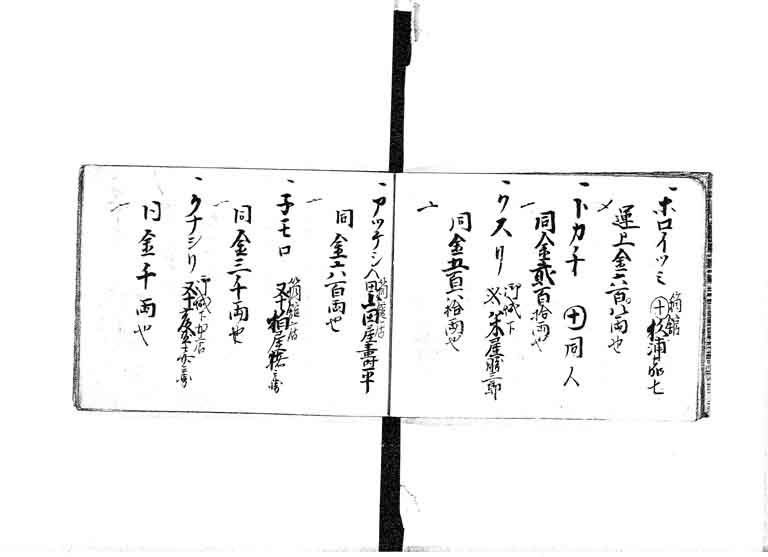 一 ホロイツミ 箱館 ㊉杉浦嘉七
運上金六百八両也
一 トカチ ㊉同人
同金貳百拾両也
一 クスリ 御城下 米屋
同金五百八拾両也
一 アツケシ 箱舘店 山田屋壽平
同金六百両也
一 子モロ 箱舘店 又十 柏屋
同金三千両也
一 クナシリ 御城下 又十
同金千両也